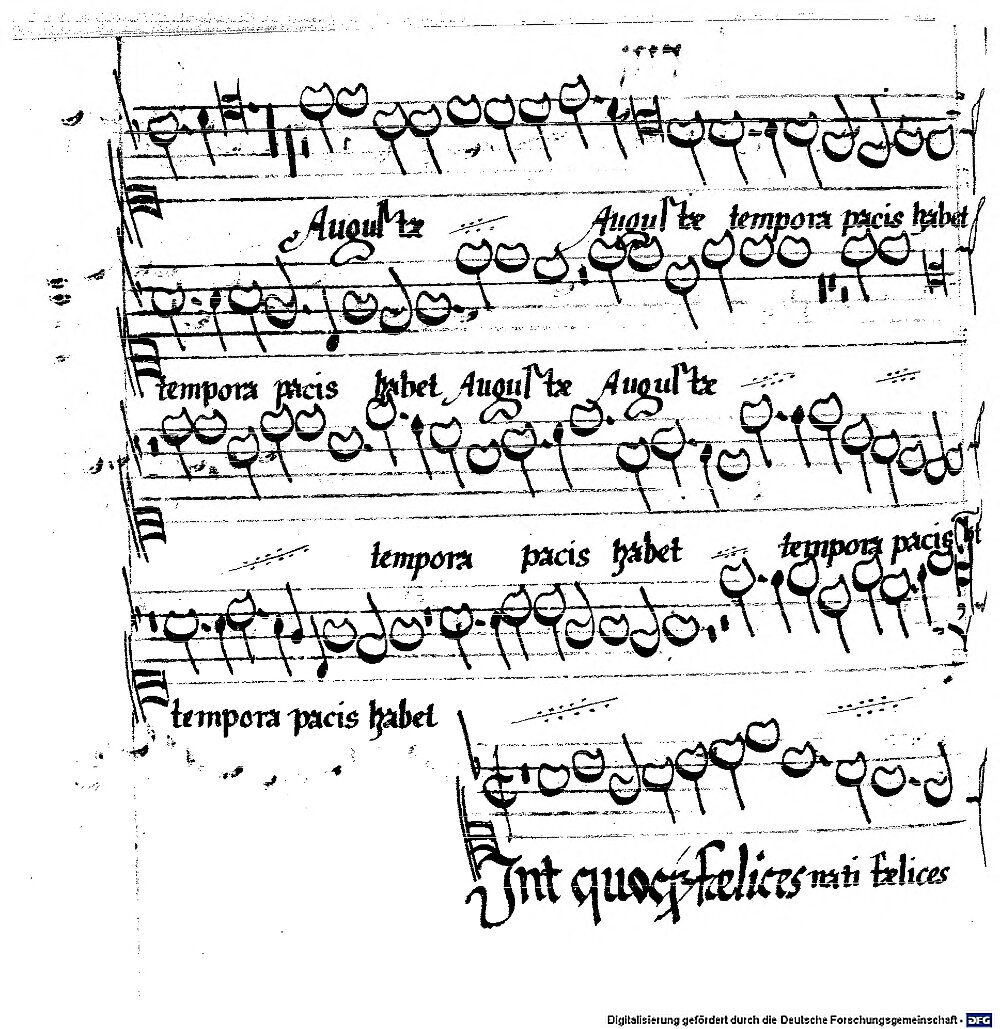 Augustæ Augustæ tempora pacis habet
tempora pacis habet Augustæ Augustæ
tempora pacis habet tempora pacis ht
tempora pacis habet
Sint quoqꝫ fælices nati fælices
Digitalisierung gefördert durch die Deutsche Forschungsgemeinschaft - DFG